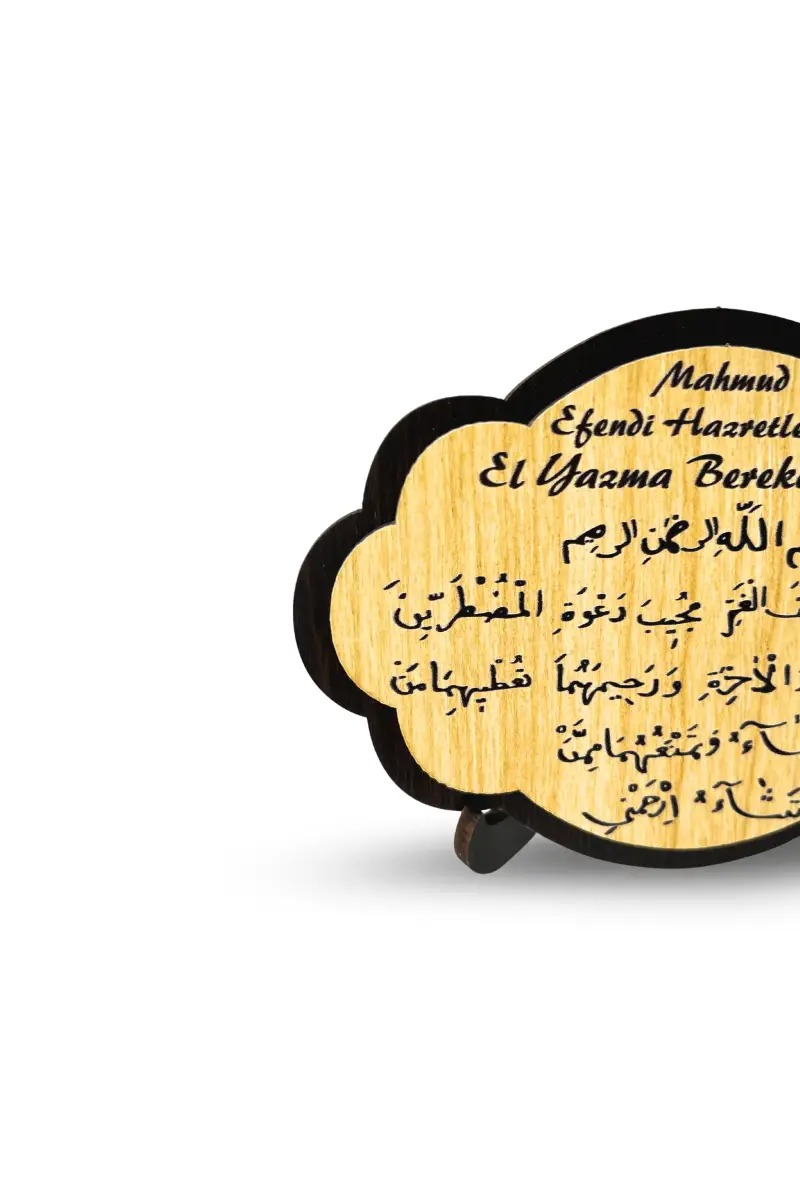 Mahmud
Efendi Hazretle
El Yazma Bereke
اللّٰهِ الرحمٰنِ الرحيم
الْغَمِّ مُجِيبَ دَعْوَةِ الْمُضْطَرِّينَ
الْاٰخِرَةِ وَرَحِيمَهُمَا تُعْطِيهِمَا مَنْ
وَتَمْنَعُهُمَا مِمَّنْ
تَشَآءُ اِرْحَمْنِي